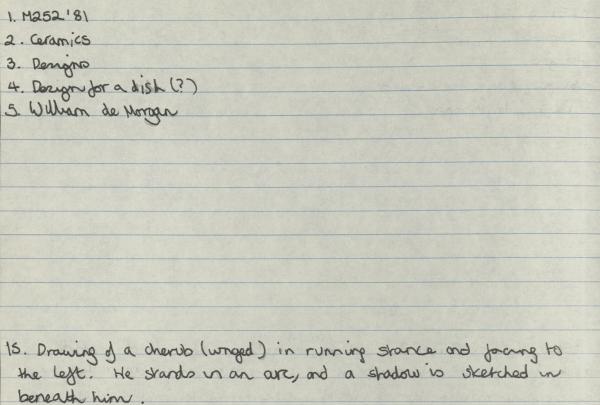 1. M252 '81
2. Ceramics
3. Designs
4. Design for a dish (?)
5. William de Morgan
15. Drawing of a cherub (winged) in running stance and facing to
the left. He stands in an arc, and a shadow is sketched in
beneath him.